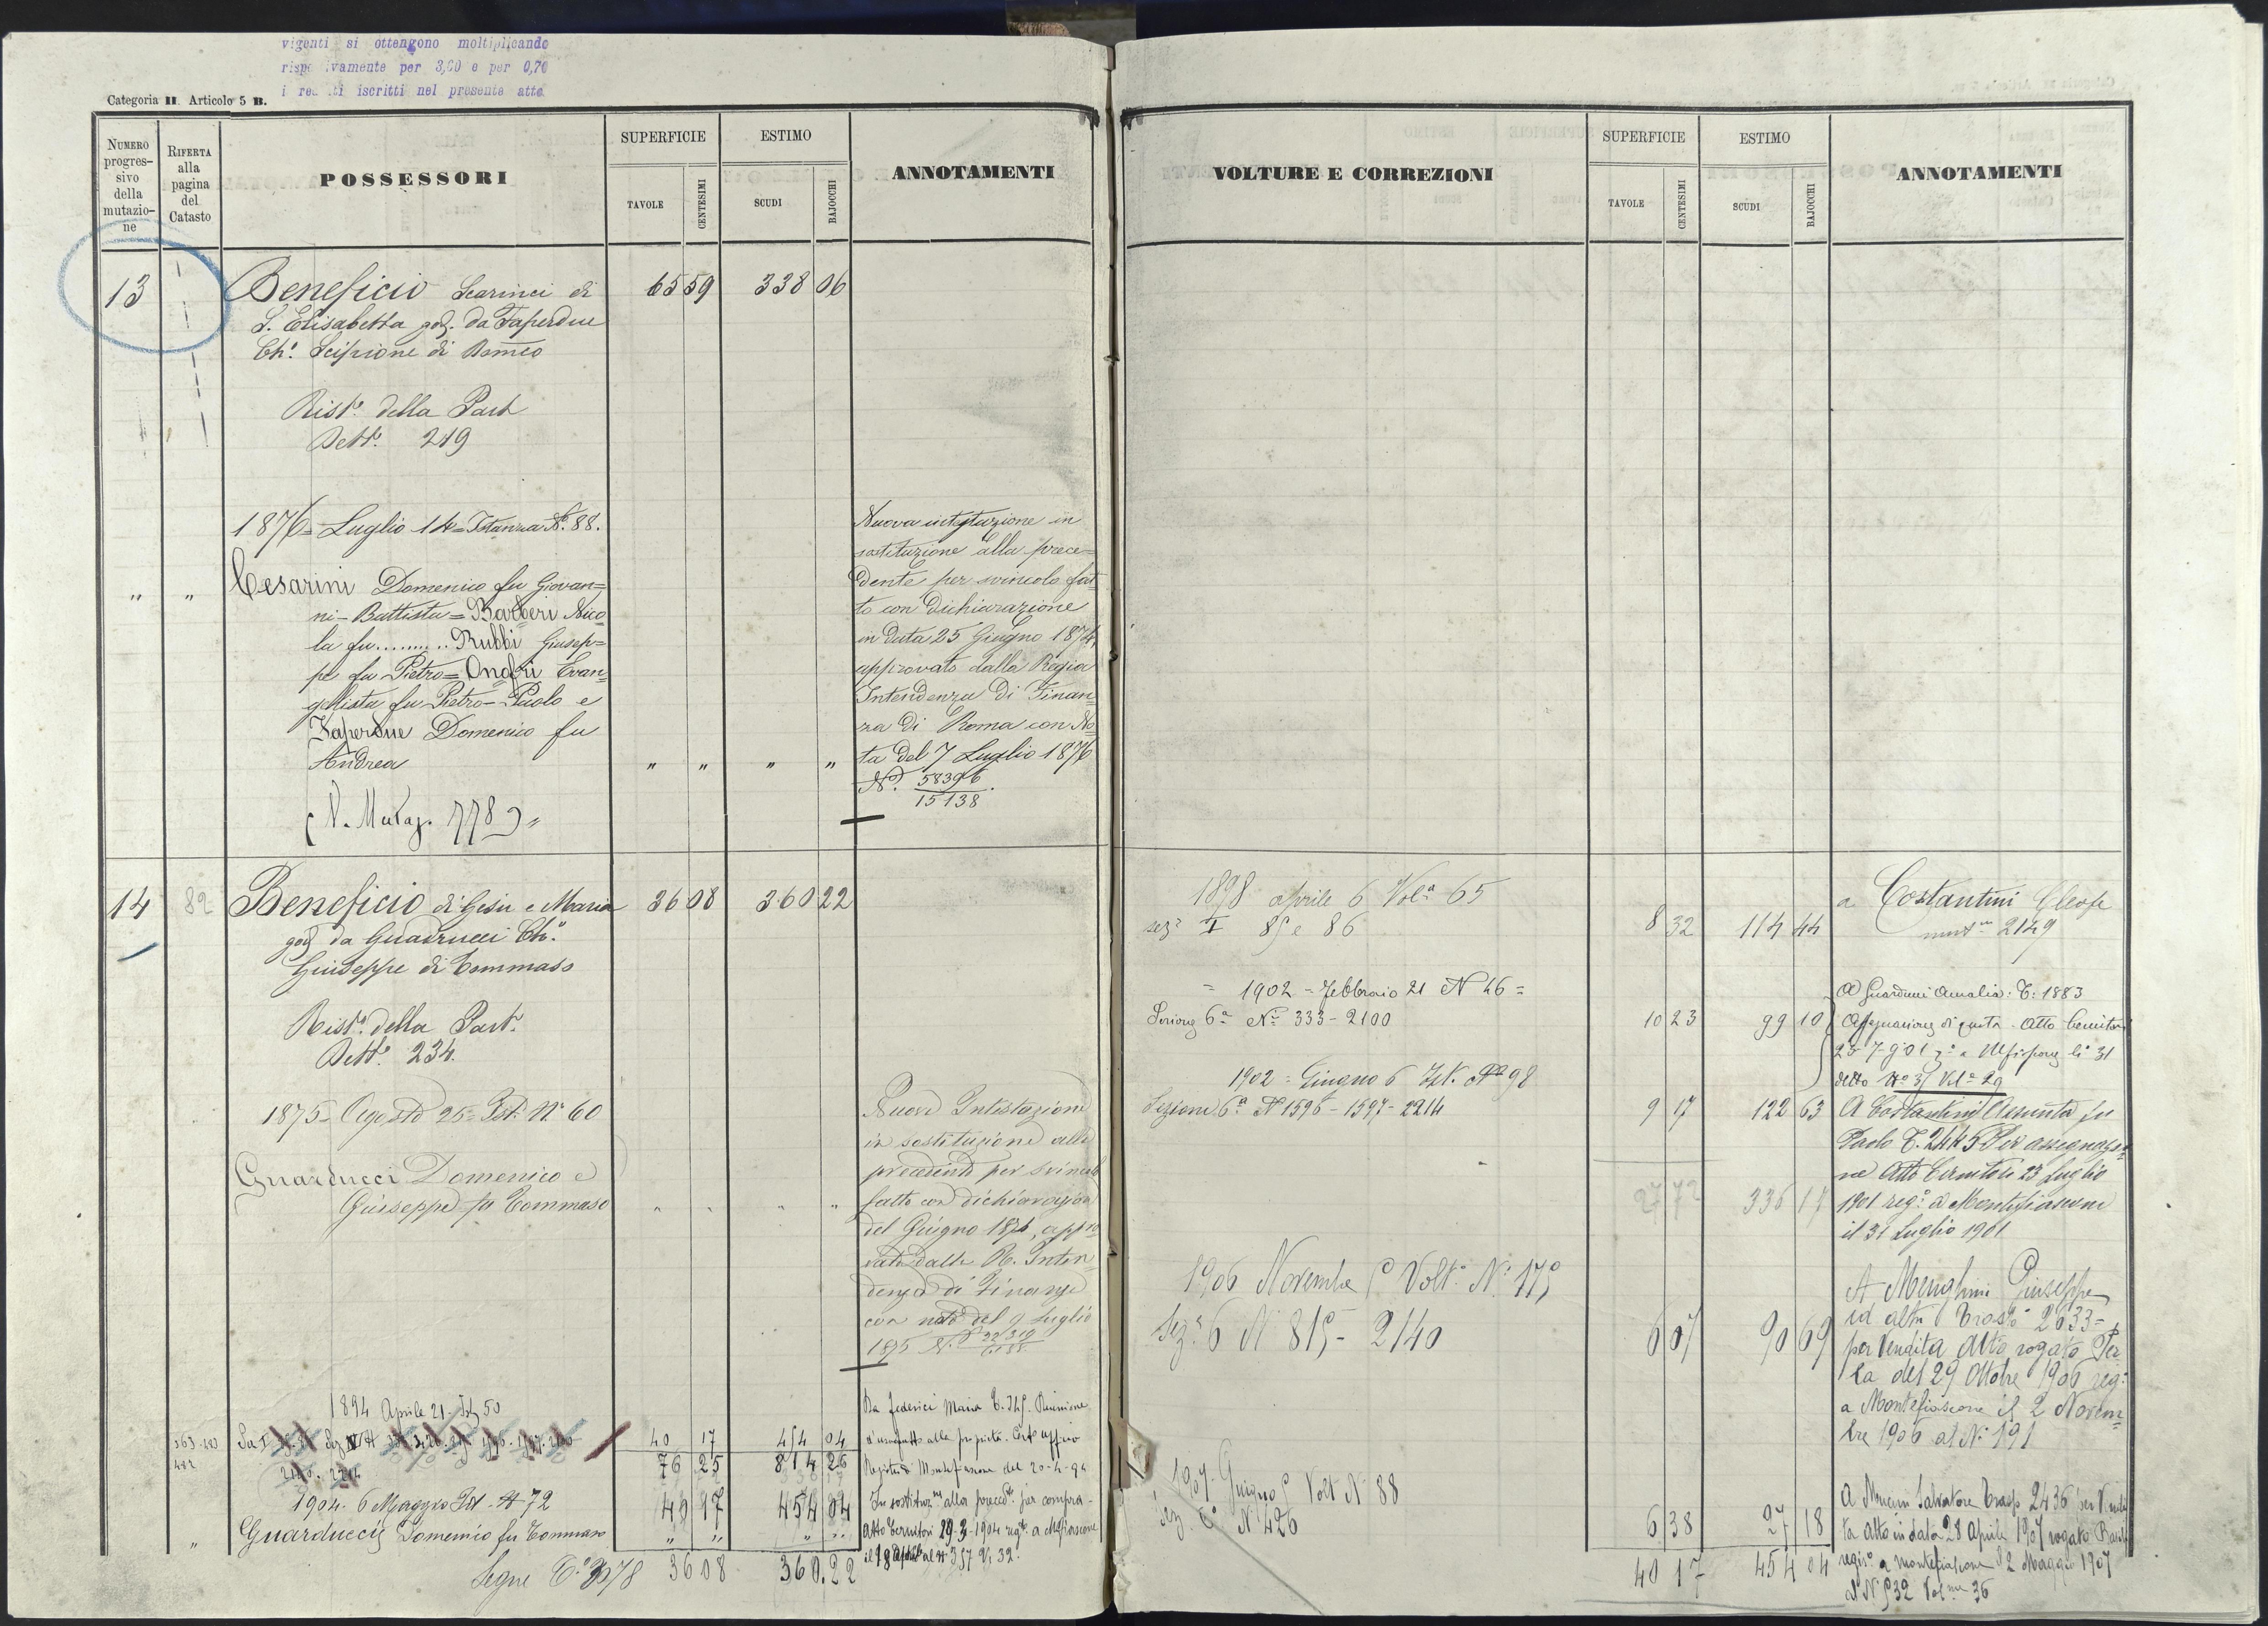 vigenti si ottengono moltiplicando
rispe ivamente per 3,00 e per 0,70
i red ti iscritti nel presente atto
Categoria II Articolo 5 B.
NUMERO progres- sivo della mutazio- ne
RIFERTA alla pagina del Catasto
POSSESSORI
SUPERFICIE
TAVOLE
CENTESIMI
ESTIMO
SCUDI
BAJOCCHI
ANNOTAMENTI
13 Beneficio Scarinci di 65 59 338 06
S. Elisabetta god. da Faperdue
Ch.º Scipione di Romeo
Rist.º della Part
Dett.º 219
1876 = Luglio 14 = Istanza Nº. 88.
" " Cesarini Domenico fu Giovan=
ni-Battista = Barberi Nico
la fu......... Rubbi Giusep=
pe fu Pietro = Onofri Evan=
gelista fu Pietro-Paolo e
Faperdue Domenico fu
Andrea " " " "
(V. Mutaz. 778)
Nuova intestazione in
sostituzione alla prece=
dente per svincolo fat
to con dichiarazione
in data 25 Giugno 1874,
approvato dalla Regia
Intendenza di Finan=
za di Roma con No
ta del 7 Luglio 1876
Nº. 58396
15138
14 82 Beneficio di Gesù e Maria 36 08 360 22
god da Guarducci Ch.º
Giuseppe di Tommaso
Rist.º della Part.
Dett.º 234.
1875 = Agosto 25 = Ist. Nº 60
Guarducci Domenico e
Giuseppe fu Tommaso " " " "
Nuova Intestazione
in sostituzione alla
precedente per svincolo
fatto con dichiarazione
del Giugno 1874, appro
vata dalla R. Inten
denza di Finanze
con nota del 9 Luglio
1875 N.
1894 Aprile 21 - Ist 50
363-483 40 17 454 04
482
76 25 814 26
Da Federici Maria Riunione
d'usufrutto alla proprietà. Certo ufficio
Registro Montefiascone del 20-4-94
1904. 6 Maggio Ist. Nº 72 40 17 454 04
" Guarducci Domenico fu Tommaso " " " "
Segue T.º 3078 36 08 360.22
In sostituz.ne alla preced.te per compra-
Atto Cernitori 29-3-1904 reg.to a Mfiascone
il 18 aprile al Nº 357 V. 32.
VOLTURE E CORREZIONI
SUPERFICIE
TAVOLE
CENTESIMI
ESTIMO
SCUDI
BAJOCCHI
ANNOTAMENTI
1898 aprile 6 Vol.a 65
sez.e I 85 e 86 8 32 114 44
a Costantini Cleofe
mut.ne 2149
= 1902 = Febbraio 21 N 46 =
Sezione 6ª Nº 333 - 2100 10 23 99 10
A Guarducci Amalia: T: 1883
Assegnazione di quota - Atto Cernitori
li 31
detto Nº 37 Vol.e 29
1902 = Giugno 6 Ist. Nº 98
Sezione 6ª Nº 1596 - 1597 - 2214 9 17 122 63
A Costantini Assunta fu
Paolo T. 2445 Per assegnazio=
ne Atto Cernitori 23 Luglio
1901 reg.º a Montefiascone
il 31 Luglio 1901
27 72 336 17
1906 Novembre 5 Volt.ª Nº 175
Sez.e 6 Nº 815 - 2140 6 07 90 69
A Menghini Giuseppe
ed altri Trasp.º 2633 -
per Vendita Atto rogato Per
la del 29 Ottobre 1906 reg.º
a Montefiascone il 2 Novem=
bre 1906 al Nº 191
1907 - Giugno 5 Volt Nº 88
Sez. 6ª Nº 426 6 38 27 18
A Mancini Salvatore Trasp. 2436 per Vendi
ta atto in data 28 Aprile 1907 rogato
regis.º a Montefiascone 12 Maggio 1907
al Nº 532 Vol.me 36
40 17 454 04